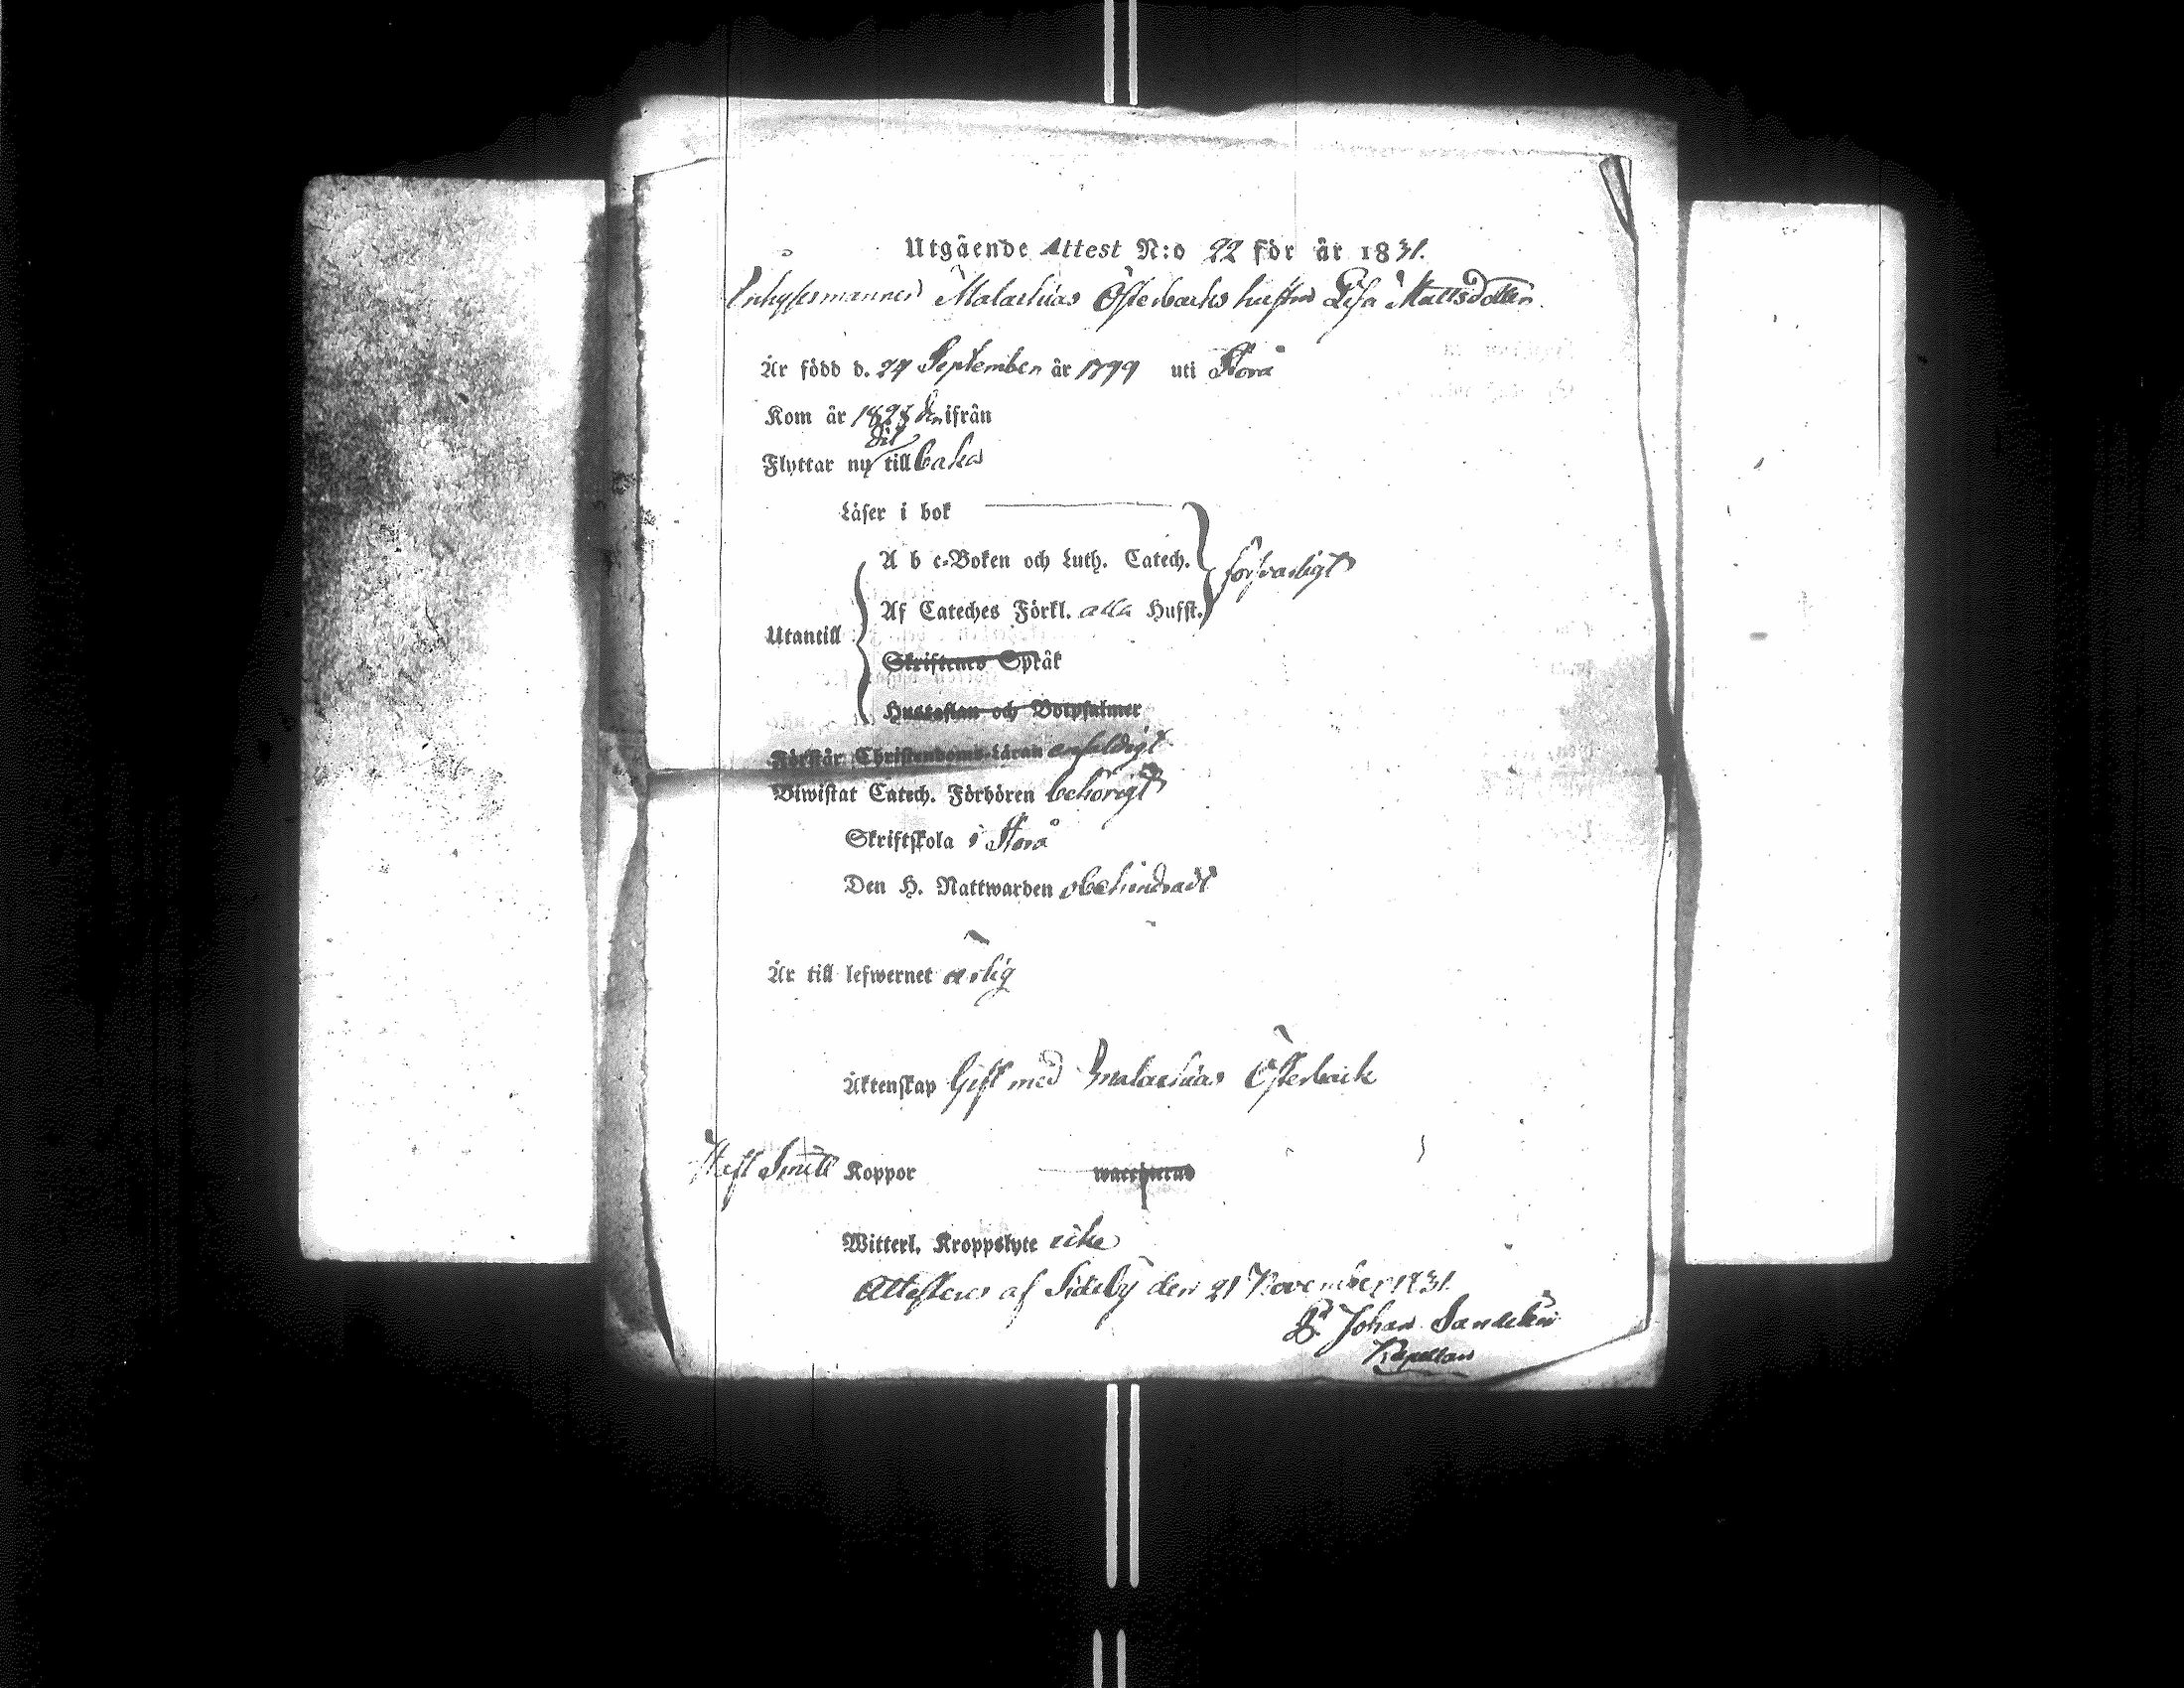 Utgående Attest N:o 22 för år 1831.
Inhysesmannen Malachias Österbacks hustru Lisa Mattsdotter
Är född d. 24 September år 1799 uti Storå
Kom år 1828 därifrån
dit
Flyttar ny till baka
Läser i bok
A b c-Boken och Luth. Catech.
försvarligt
Af Cateches Förkl. alla Husst.
Utantill
Skriftenes Språk
Hustaflan och Botpsalmer
Förstår Christendoms-Läran enfaldigt
Biwistat Catech. Förhören behörigt
Skriftskola i Storå
Den H. Nattwarden obehindradt
Är till lefwernet ärlig
Äktenskap Gift med Malachias Österback
Haft Små Koppor waccineras
Witterl. Kroppslyte icke
Attesteras af Sideby den 21 November 1831.
Johan Sandelin
Kapellan